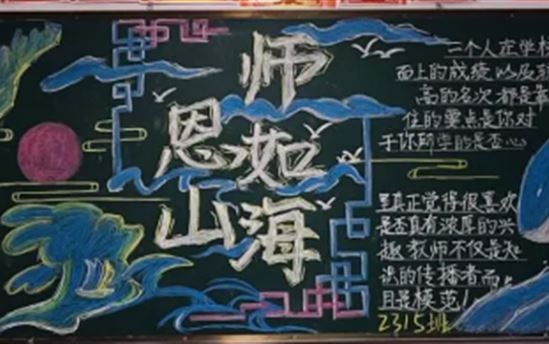 师
恩如
山海
一个人在学校
面上的成绩以及
高的名次都是靠
住的要点是你对
于你所学的是否心
里真正觉得很喜欢
是否真有浓厚的兴
趣教师不仅是知
识的传播者而
且是模范！
2315班